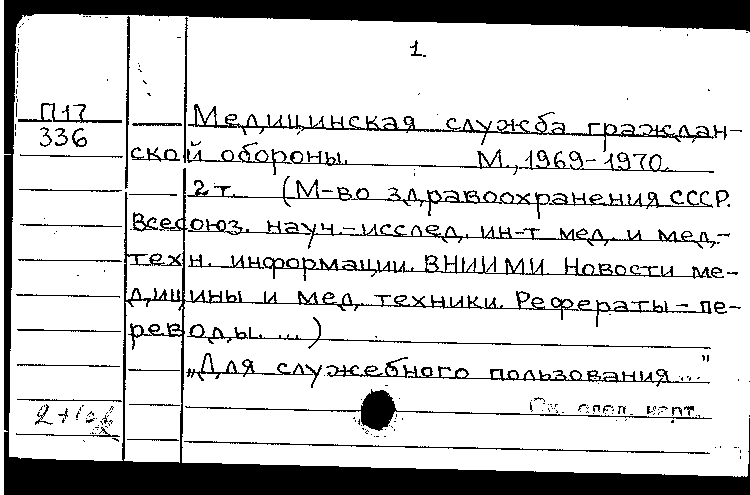 1.
П17
336
Медицинская служба граждан-
ской обороны. М., 1969-1970.
2 т. (М-во здравоохранения СССР.
Всесоюз. науч.-исслед. ин-т мед. и мед.-
техн. информации. ВНИИМИ. Новости ме-
дицины и мед. техники. Рефераты-пе-
реводы. ...)
„Для служебного пользования..."
См. след. карт.